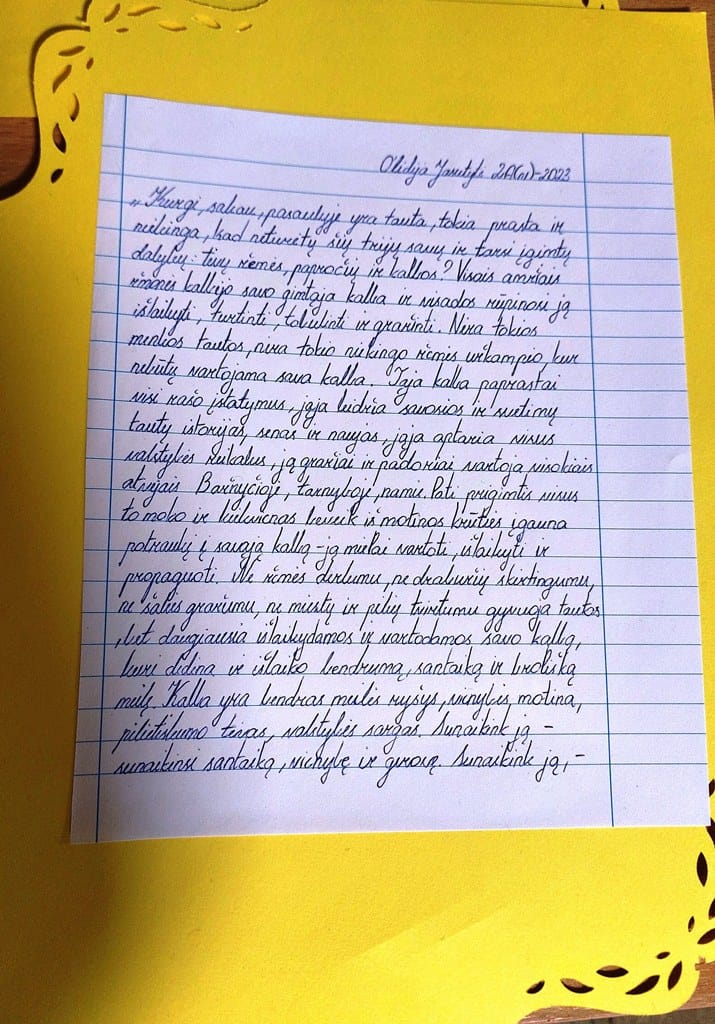 2A(n)-2023
„Kurgi, sakau, pasaulyje yra tauta, tokia prasta ir
niekinga, kad neturėtų šių trijų savų ir tarsi įgimtų
dalykų: tėvų žemės, papročių ir kalbos? Visais amžiais
žmonės kalbėjo savo gimtąja kalba ir visados rūpinosi ją
išlaikyti, turtinti, tobulinti ir gražinti. Nėra tokios
menkos tautos, nėra tokio niekingo žemės užkampio, kur
nebūtų vartojama sava kalba. Taja kalba paprastai
visi rašo įstatymus, jąja leidžia savosios ir svetimų
tautų istorijas, senas ir naujas, jąja aptaria visus
valstybės reikalus, ją gražiai ir padoriai vartoja visokiais
atvejais Bažnyčioje, tarnyboje, namie. Pati prigimtis visus
to moko ir kiekvienas beveik iš motinos krūties įgauna
potraukį į savąją kalbą - ją mielai vartoti, išlaikyti ir
propaguoti. Ne žemės derlumu, ne drabužių skirtingumu,
ne šalies gražumu, ne miestų ir pilių tvirtumu gyvuoja tautos
, bet daugiausia išlaikydamos ir vartodamos savo kalbą,
kuri didina ir išlaiko bendrumą, santaiką ir brolišką
meilę. Kalba yra bendras meilės ryšys, vienybės motina,
pilietiškumo tėvas, valstybės sargas. Sunaikink ją -
sunaikinsi santaiką, vienybę ir gerovę. Sunaikink ją, -